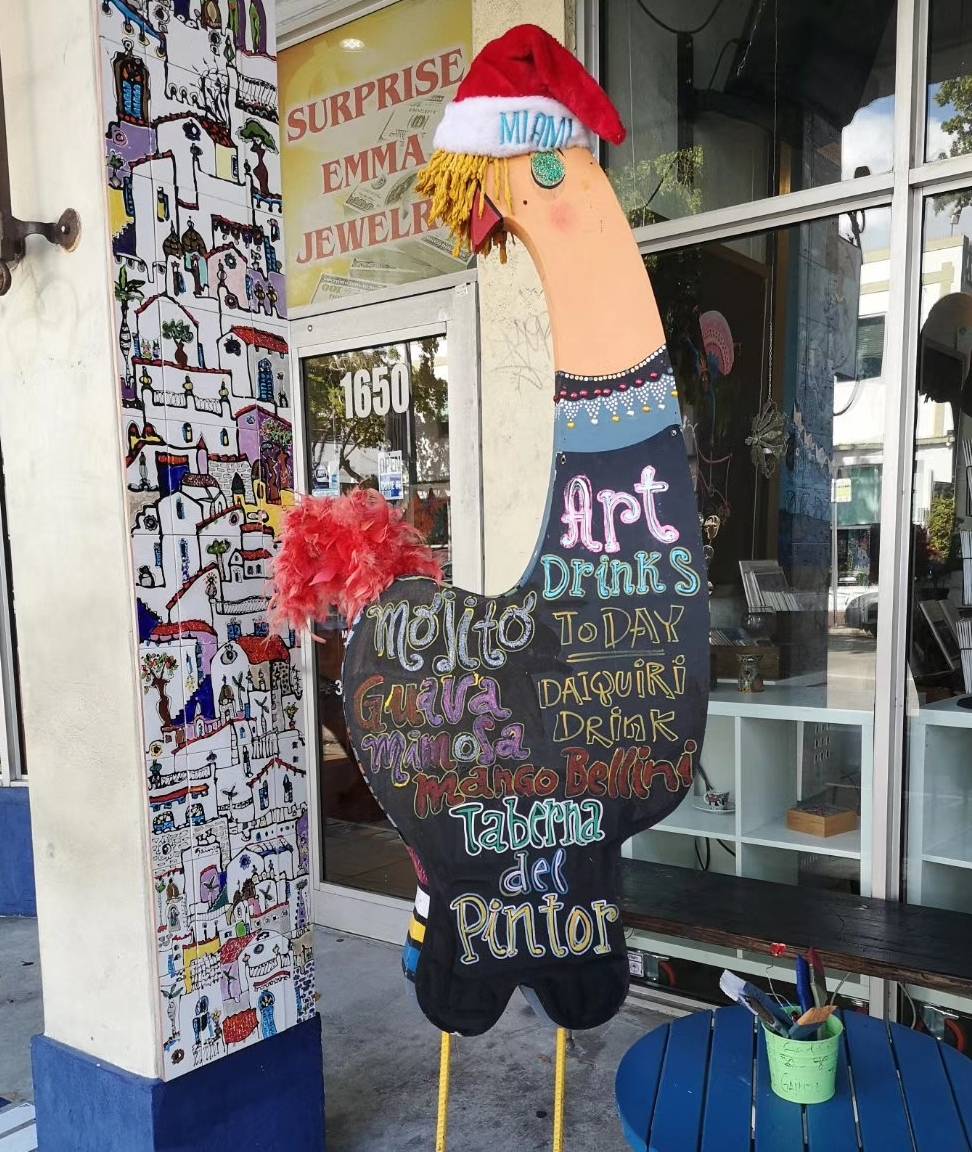 SURPRISE
EMMA
JEWELRY
MIAMI
1650
OPEN
Art
Drinks
ToDAY
Mojito
Guava
mimosa
DAIQUIRI
DRINK
mango Bellini
Taberna
del
Pintor